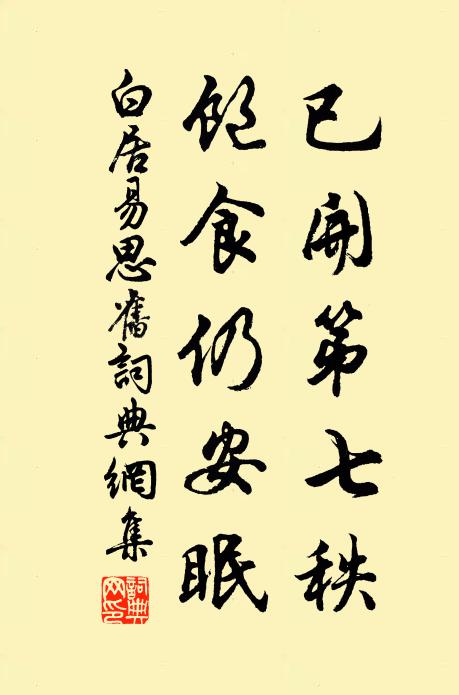 已開第七秩
飽食仍安眠
白居易思舊詞典網集
詞典網印